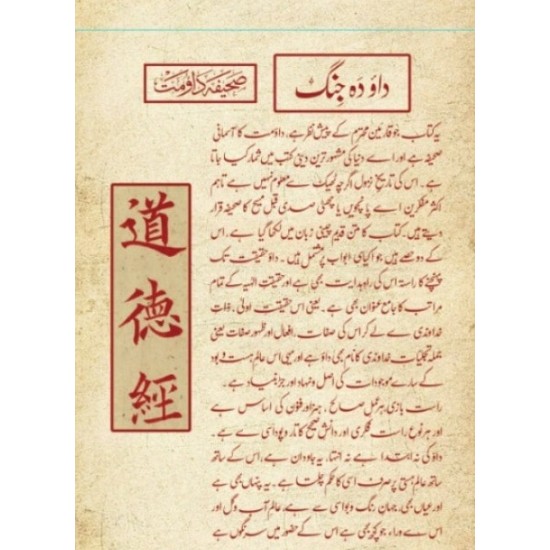 داؤ دہ جِنگ
صحیفہ داؤمت
道德經
یہ کتاب جو قارئین محترم کے پیش نظر ہے، داؤمت کا آسمانی
صحیفہ ہے اور اسے دنیا کی مشہور ترین دینی کتب میں شمار کیا جاتا
ہے۔ اس کی تاریخِ نزول اگرچہ ٹھیک سے معلوم نہیں ہے تاہم
اکثر مفکرین اسے پانچویں یا چھٹی صدی قبل مسیح کا صحیفہ قرار
دیتے ہیں۔ کتاب کا متن قدیم چینی زبان میں لکھا گیا ہے، اس
کے دو حصے ہیں جو اکیاسی ابواب پر مشتمل ہیں۔ داؤ حقیقت تک
پہنچنے کا راستہ، اس کی راہ ہدایت بھی ہے اور حقیقتِ الٰہیہ کے تمام
مراتب کا جامع عنوان بھی ہے۔ یعنی اس حقیقتِ اولیٰ، ذاتِ
خداوندی سے لے کر اس کی صفات، افعال اور ظہورِ صفات یعنی
جملہ تجلیاتِ خداوندی کا نام بھی داؤ ہے اور یہی اس عالمِ ہست و بود
کے سارے موجودات کی اصل و نہاد اور جڑ بنیاد ہے۔
راست بازی، ہر عمل صالح، ہنر اور فنون کی اساس ہے
اور ہر نوع راست فکری اور دانش صحیح کا تار و پود اسی سے ہے۔
داؤ کی نہ ابتدا ہے نہ انتہا، یہ جاودان ہے، اس کے ساتھ
ساتھ عالمِ ہستی پر صرف اسی کا حکم چلتا ہے۔ یہ پنہاں بھی ہے
اور عیاں بھی، جہان رنگ و بو اسی سے ہے، عالمِ آب و گل اور
اس سے وراء جو کچھ بھی ہے اس کے حضور میں سرنگوں ہے